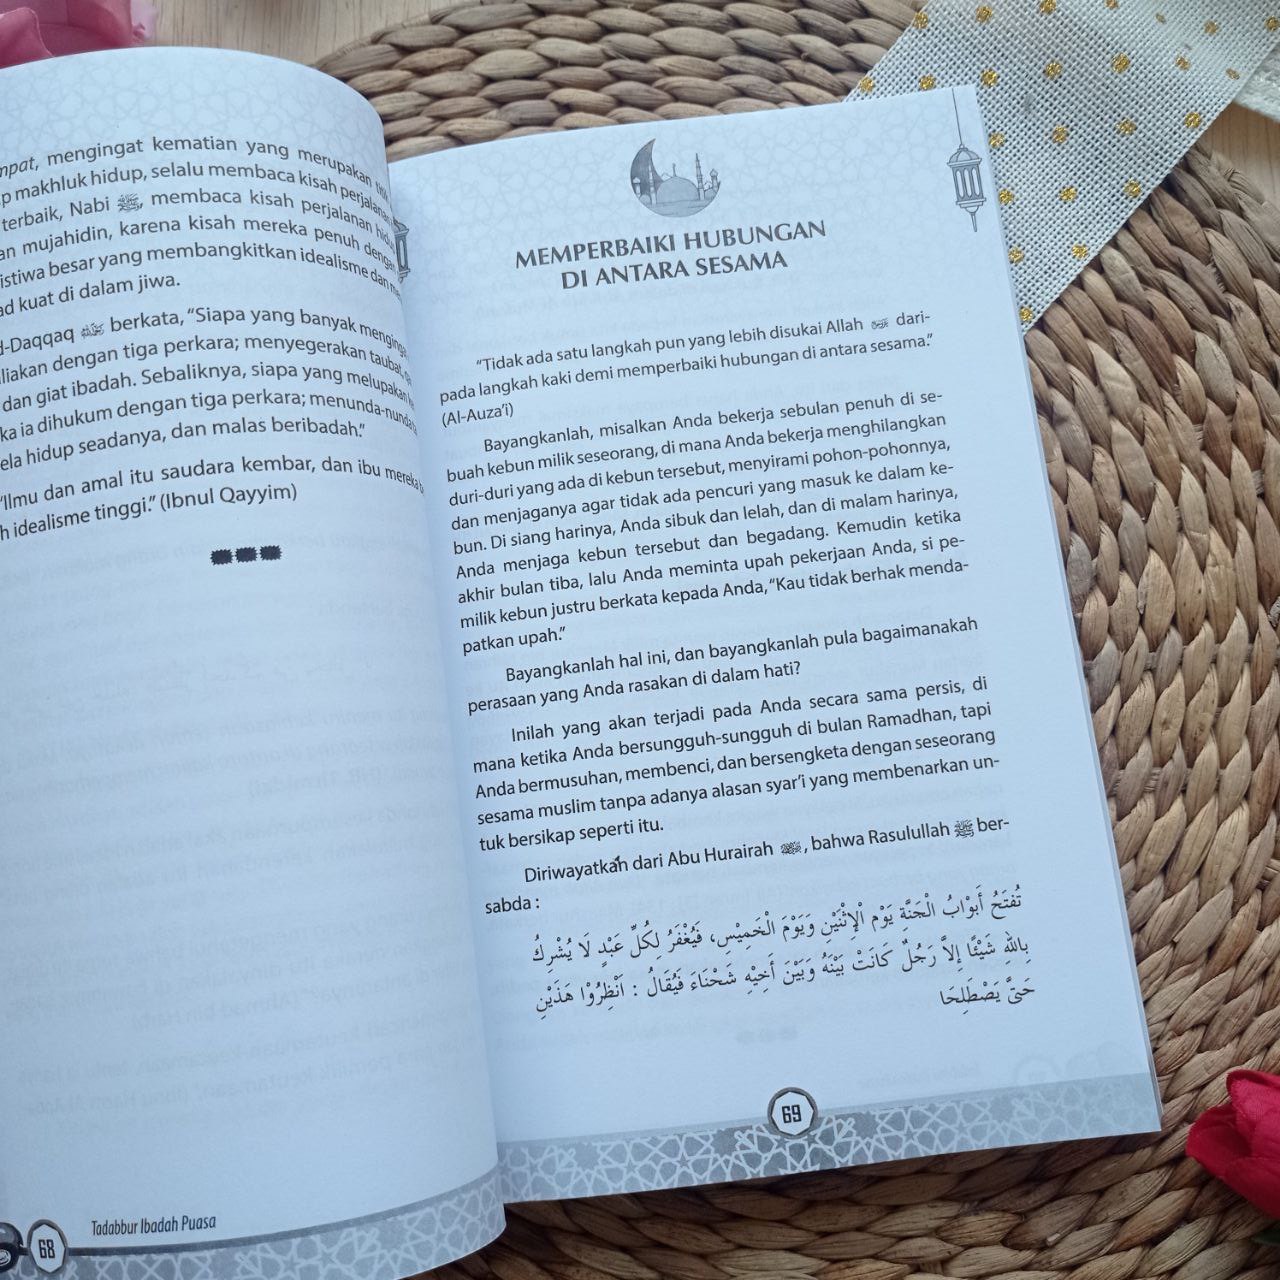 mpat, mengingat kematian yang merupakan
p makhluk hidup, selalu membaca kisah perjalanan
terbaik, Nabi ﷺ, membaca kisah perjalanan
an mujahidin, karena kisah mereka penuh dengan
istiwa besar yang membangkitkan idealisme dan
ad kuat di dalam jiwa.
d-Daqqaq berkata, “Siapa yang banyak
liakan dengan tiga perkara; menyegerakan taubat,
dan giat ibadah. Sebaliknya, siapa yang melupakan
ka ia dihukum dengan tiga perkara; menunda-nunda
ela hidup seadanya, dan malas beribadah.”
“Ilmu dan amal itu saudara kembar, dan ibu mereka
h idealisme tinggi.” (Ibnul Qayyim)
68
Tadabbur Ibadah Puasa
MEMPERBAIKI HUBUNGAN
DI ANTARA SESAMA
“Tidak ada satu langkah pun yang lebih disukai Allah dari-
pada langkah kaki demi memperbaiki hubungan di antara sesama.”
(Al-Auza’i)
Bayangkanlah, misalkan Anda bekerja sebulan penuh di se-
buah kebun milik seseorang, di mana Anda bekerja menghilangkan
duri-duri yang ada di kebun tersebut, menyirami pohon-pohonnya,
dan menjaganya agar tidak ada pencuri yang masuk ke dalam ke-
bun. Di siang harinya, Anda sibuk dan lelah, dan di malam harinya,
Anda menjaga kebun tersebut dan begadang. Kemudin ketika
akhir bulan tiba, lalu Anda meminta upah pekerjaan Anda, si pe-
milik kebun justru berkata kepada Anda, “Kau tidak berhak menda-
patkan upah.”
Bayangkanlah hal ini, dan bayangkanlah pula bagaimanakah
perasaan yang Anda rasakan di dalam hati?
Inilah yang akan terjadi pada Anda secara sama persis, di
mana ketika Anda bersungguh-sungguh di bulan Ramadhan, tapi
Anda bermusuhan, membenci, dan bersengketa dengan seseorang
sesama muslim tanpa adanya alasan syar’i yang membenarkan un-
tuk bersikap seperti itu.
Diriwayatkan dari Abu Hurairah , bahwa Rasulullah ﷺ ber-
sabda :
تُفْتَحُ أَبْوَابُ الْجَنَّةِ يَوْمَ الْإِثْنَيْنِ وَيَوْمَ الْخَمِيْسِ، فَيُغْفَرُ لِكُلِّ عَبْدٍ لَا يُشْرِكُ
بِاللهِ شَيْئًا إِلاَّ رَجُلٌ كَانَتْ بَيْنَهُ وَبَيْنَ أَخِيْهِ شَحْنَاءُ فَيُقَالُ : اَنْظِرُوْا هَذَيْنِ
حَتَّى يَصْطَلِحَا
69